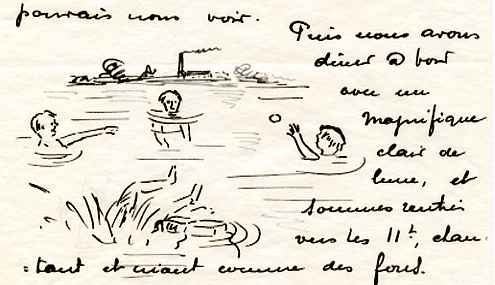 pouvais nous voir.
Puis nous avons
dîner à bord
avec un
magnifique
clair de
lune, et
sommes rentrés
vers les 11h, chan-
=tant et riant comme des fous.